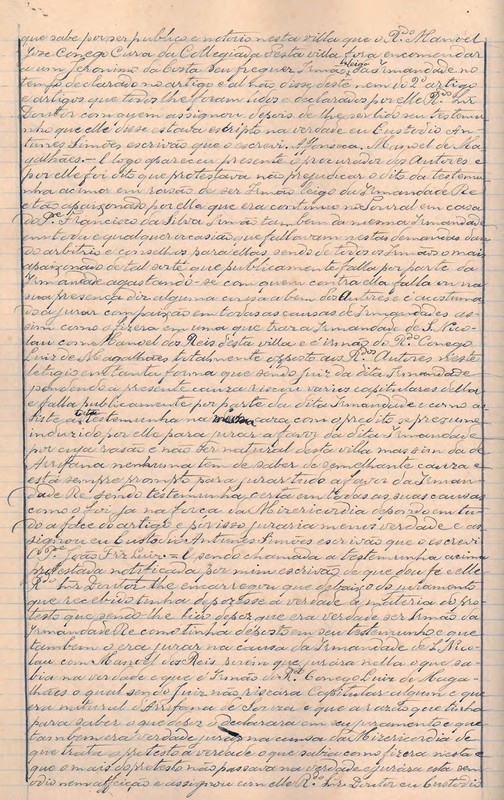 que sabe por ser publico e notorio nesta villa que o R.do Manoel
Jose Conego Cura da Collegiada desta villa fora encomendar
a um Jeronimo da Costa seu freguez Irmão leigo das Irmandade no
tempo declarado no artigo e al não disse deste nem do 2º artigo
e artigos que todos lhe foram lidos e declarados por elle R.do Snr
Doutor com quem assignou depois de lhe ser lido seu testemu
nho que elle disse estava escripto na verdade eu Custodio An
tunes Simões escrivão que o escrevi. Affonseca. Manoel de Ma
galhães. - E logo apareceu presente o procurador dos Autores e
por elle foi dito que protestava não prejudicar o dito da testemu
nha acima em rasão de ser Irmão leigo da Irmandade Re
e tão apaixonado por ella que era continuo no Toural em casa
do P.e Francisco da Silva Irmão tambem da mesma Irmandade
em toda e qualquer occasião que fallavam nestas demandas dan
do arbitrios e conselhos para ellas, sendo de todos os Irmãos o mais
apaixonado de tal sorte que publicamente falla por parte da
Irmandade agastando-se com quem contra ella falla ou na
sua presença diz alguma cousa a bem dos Autores e é acostuma
do a jurar com paixão em todas as causas de Irmandades as
sim como o fizera em uma que traz a Irmandade de S. Nico
lau com Manoel dos Reis desta villa e é irmão do R.do Conego
Luiz de Magalhães totalmente opposto aos R.dos Autores neste
letigio em tanta forma que sendo juiz da dita Irmandade
pendendo a presente causa riscou varios capitulares della
e falla publicamente por parte da dita Irmandade e como as
siste a dita testemunha na mesma casa com o predito se presume
induzido por elle para jurar a favor da dita Irmandade
por cuja rasão e não ser natural desta villa mas sim da de
Arrifana nenhuma tem de saber de semelhante causa e
está sempre prompto para jurar tudo a favor da Irman-
dade Re sendo testemunha certa em todas as suas causas
como o foi já na força da Misericordia depondo em tu-
do a face do artigo e por isso juraria menos verdade e as-
signou eu Custodio Antunes Simões escrivão que o escrevi
O P.e João Frz Luiz = E sendo chamada a testemunha acima
protestada notificada por mim escrivão de que dou fe e elle
R.do Snr Doutor lhe encarregou que debaixo do juramento
que recebido tinha depozesse a verdade a materia do pro-
testo que sendo-lhe lido depoz que era verdade ser Irmão da
Irmandade Re como tinha deposto em seu testemunho e que
tambem o era jurar na causa da Irmandade de S. Nico
lau com Manoel dos Reis porem que jurára nella o que sa-
bia na verdade e que é Irmão do R.do Conego Luiz de Maga-
lhães o qual sendo juiz não riscára Capitular algum e que
era natural d'Arrifana de Souza e que a razão que tinha
para saber o que depoz declarara em seu juramento e que
tambem era verdade jurar na causa da Misericordia de
que trata o protesto a verdade o que sabia como fizera nesta e
que o mais do protesto não passava na verdade e jurára esta sem
odio nem affeição e assignou com elle R.do Snr. Doutor eu Custodio